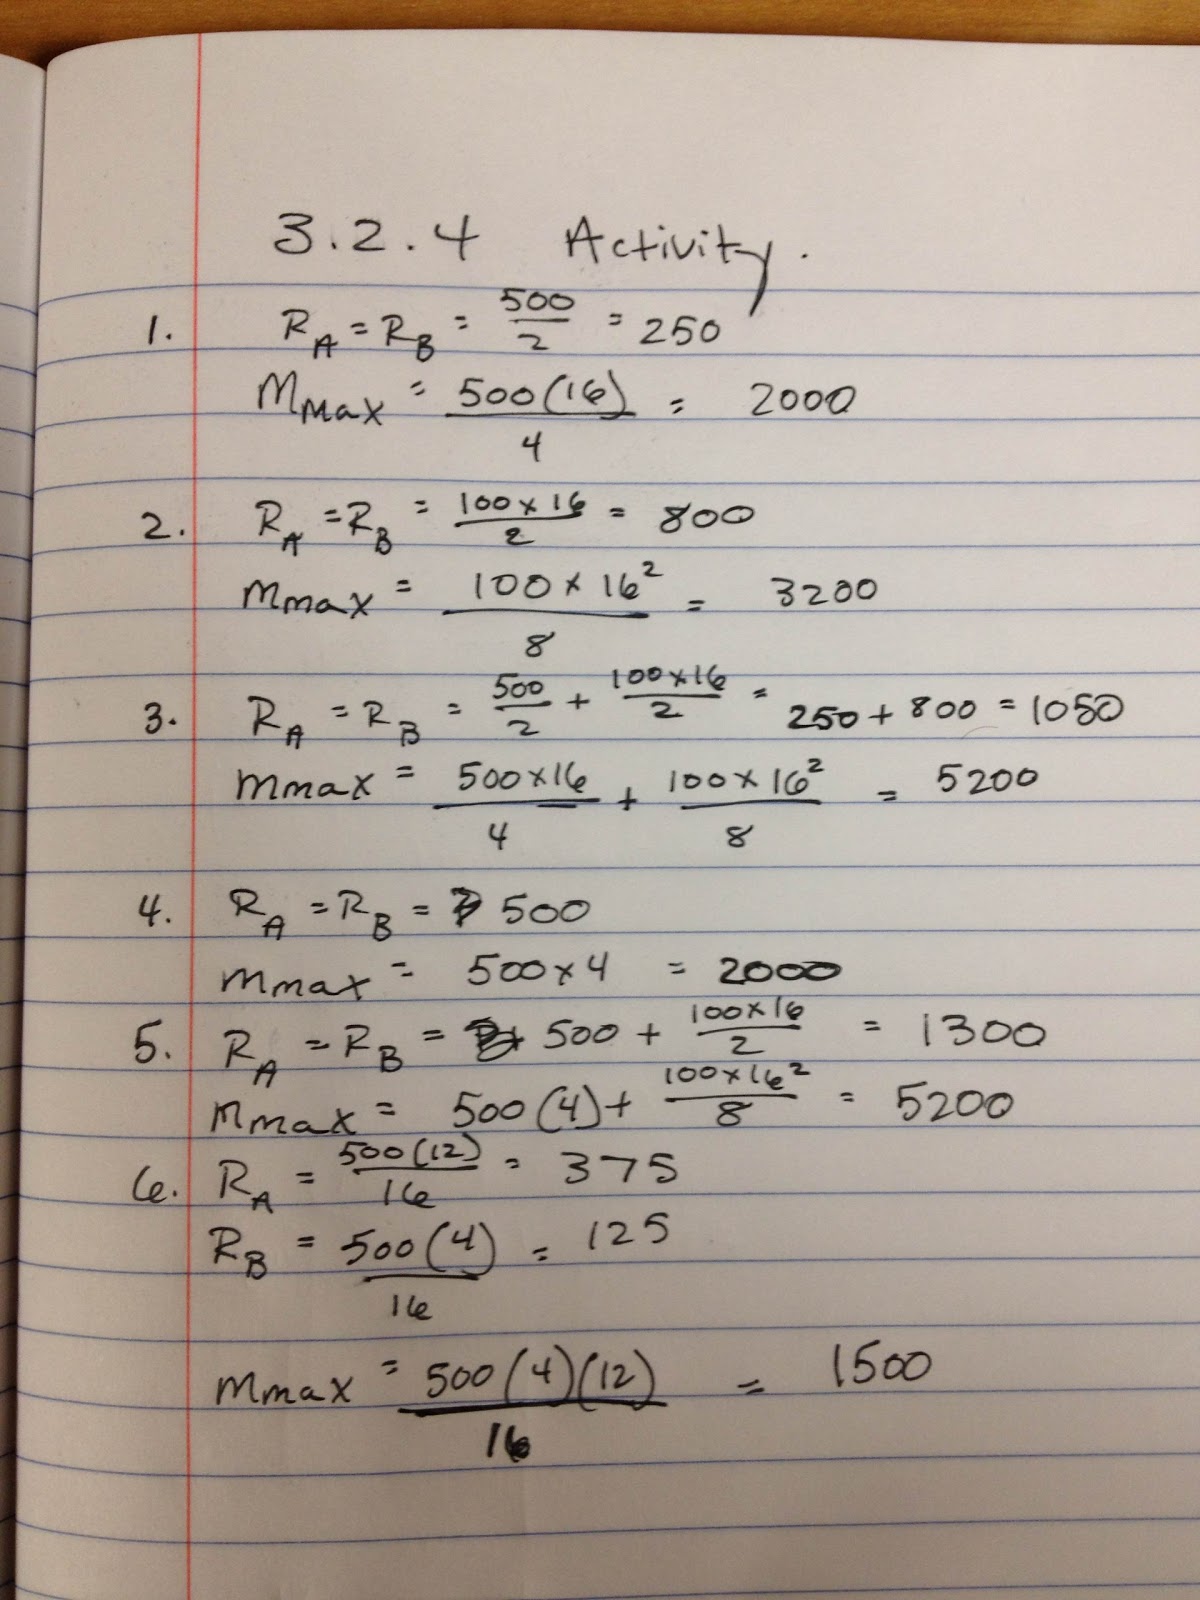 3.2.4 Activity.
1. R_A = R_B = 500/2 = 250
Mmax = 500(16)/4 = 2000
2. R_A = R_B = 100 x 16/2 = 800
Mmax = 100 x 16²/8 = 3200
3. R_A = R_B = 500/2 + 100x16/2 = 250 + 800 = 1050
Mmax = 500x16/4 + 100 x 16²/8 = 5200
4. R_A = R_B = 500
Mmax = 500 x 4 = 2000
5. R_A = R_B = 500 + 100x16/2 = 1300
Mmax = 500(4) + 100x16²/8 = 5200
6. R_A = 500(12)/16 = 375
R_B = 500(4)/16 = 125
Mmax = 500(4)(12)/16 = 1500